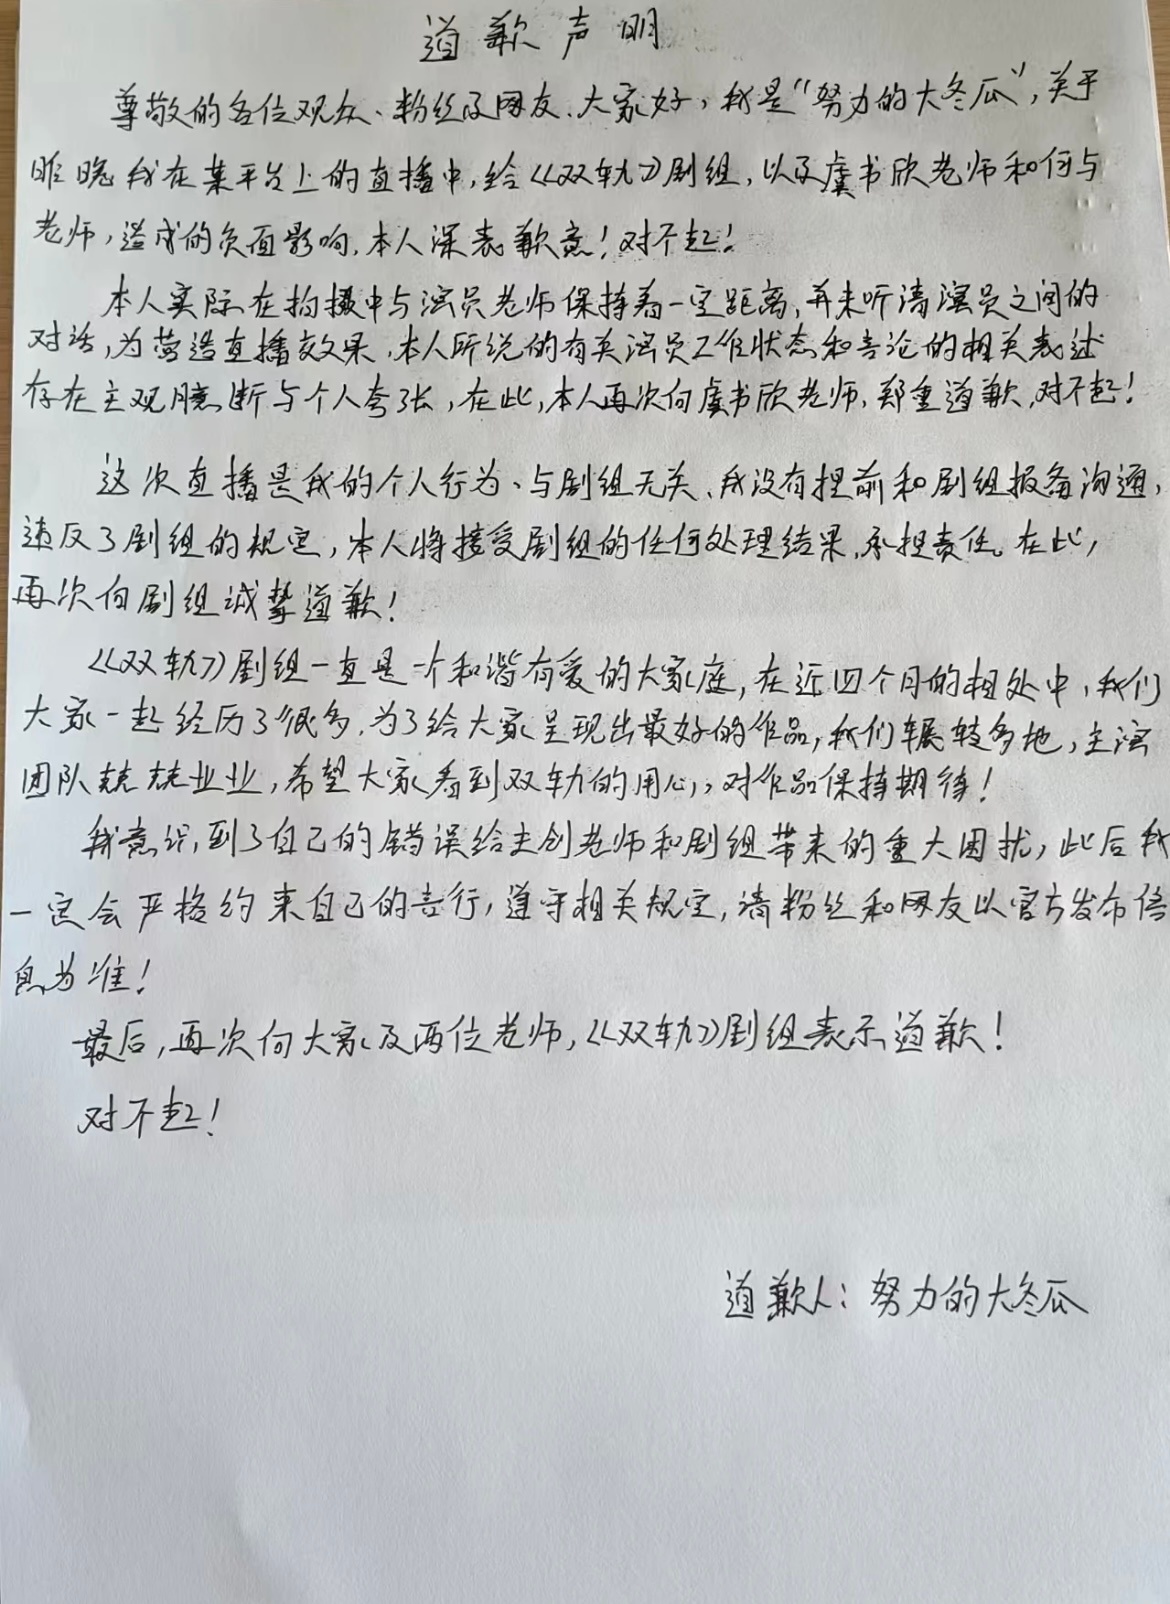 道歉声明
尊敬的各位观众、粉丝及网友、大家好，我是“努力的大冬瓜”，关于
昨晚我在某平台上的直播中，给《双轨》剧组，以及虞书欣老师和何与
老师，造成的负面影响，本人深表歉意！对不起！
本人实际在拍摄中与演员老师保持着一定距离，并未听清演员之间的
对话，为营造直播效果，本人所说的有关演员工作状态和言论的相关表述
存在主观臆断与个人夸张，在此，本人再次向虞书欣老师，郑重道歉，对不起！
这次直播是我的个人行为、与剧组无关、我没有提前和剧组报备沟通，
违反了剧组的规定，本人将接受剧组的任何处理结果，承担责任。在此，
再次向剧组诚挚道歉！
《双轨》剧组一直是一个和谐有爱的大家庭，在近四个月的相处中，我们
大家一起经历了很多，为了给大家呈现出最好的作品，我们辗转多地，主演
团队兢兢业业，希望大家看到双轨的用心，对作品保持期待！
我意识到了自己的错误给主创老师和剧组带来的重大困扰，此后我
一定会严格约束自己的言行，遵守相关规定，请粉丝和网友以官方发布信
息为准！
最后，再次向大家及两位老师，《双轨》剧组表示道歉！
对不起！
道歉人：努力的大冬瓜